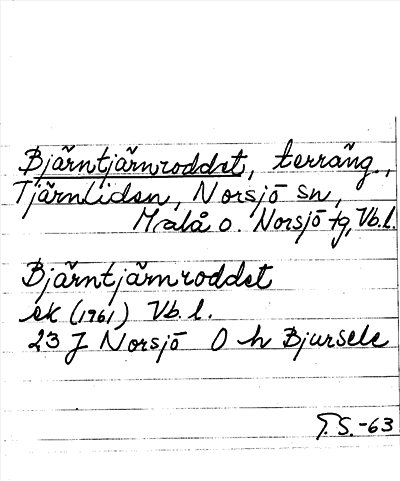 Bjärntjärnroddet, terräng.,
Tjärnliden, Norsjö sn,
Malå o. Norsjö tg, Vb.l.
Bjärntjärnroddet
ek (1961) Vb. l.
23 J Norsjö O h Bjursele
T.S.-63